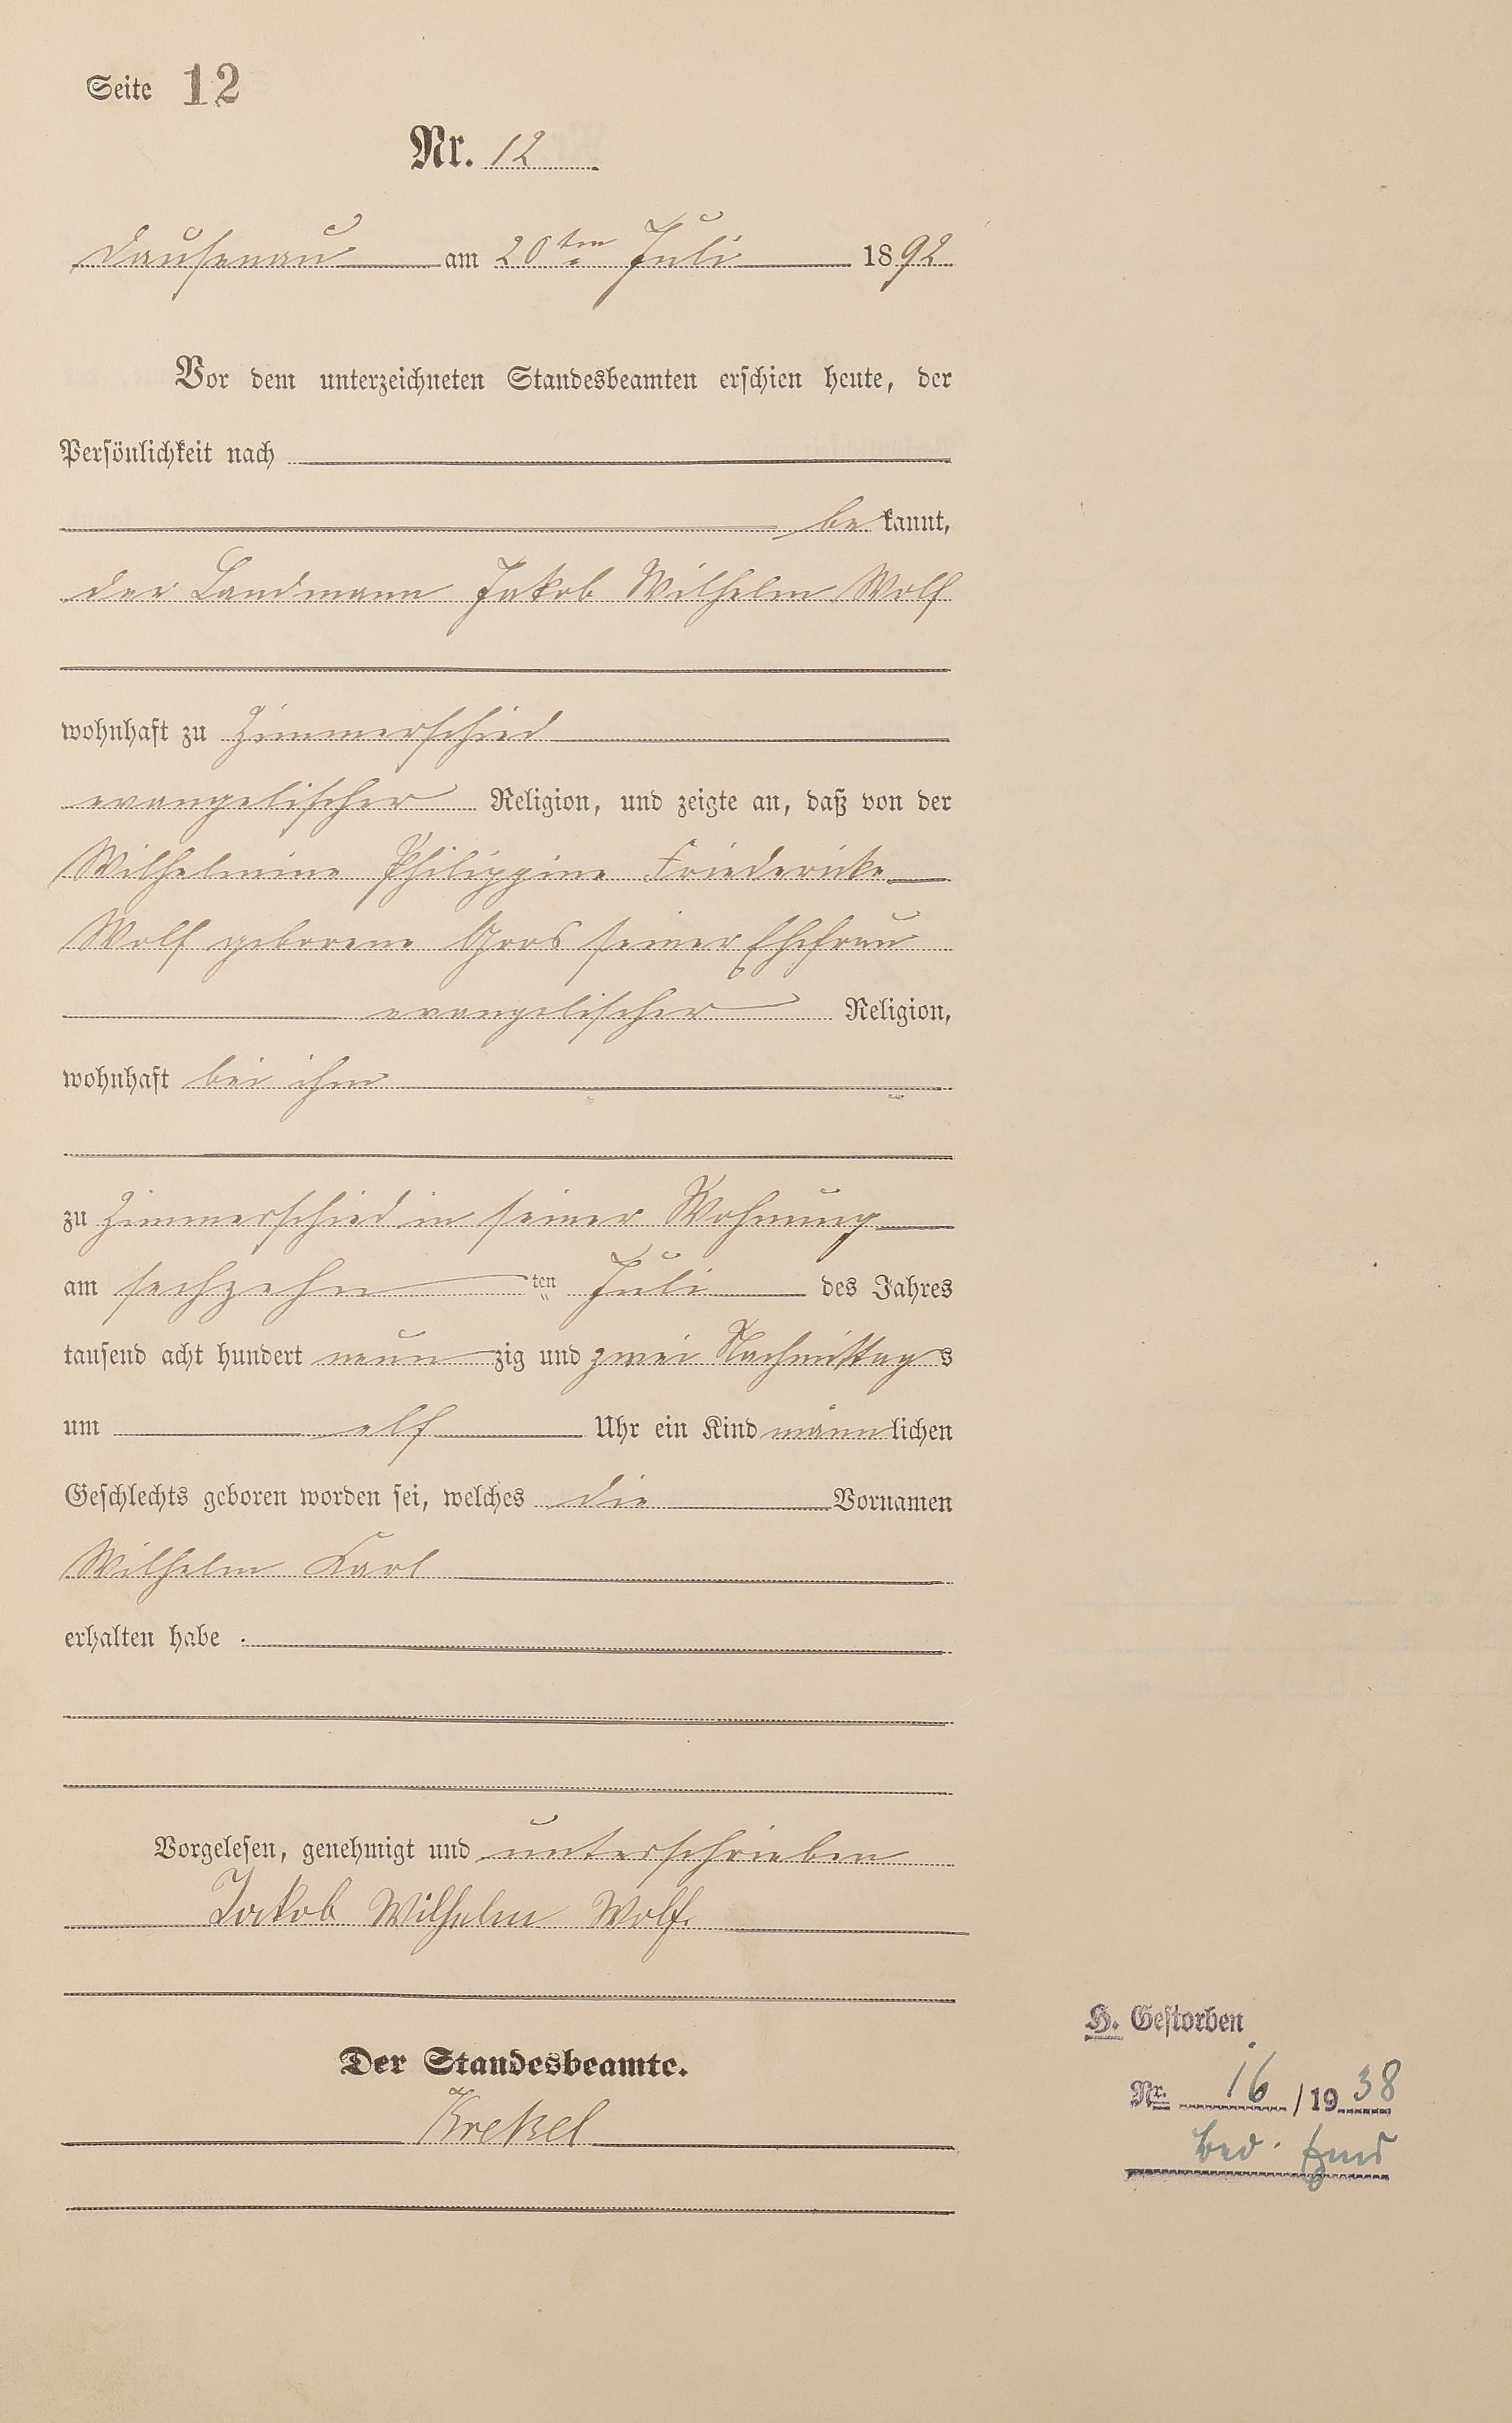 Seite 12
Nr. 12
Dausenau am 20ten Juli 1892
Vor dem unterzeichneten Standesbeamten erschien heute, der
Persönlichkeit nach
bekannt,
der Landmann Jakob Wilhelm Wolf
wohnhaft zu Zimmerschied
evangelischer Religion, und zeigte an, daß von der
Wilhelmine Philippine Friedericke
Wolf geborene Gros seiner Ehefrau
evangelischer Religion,
wohnhaft bei ihm
zu Zimmerschied in seiner Wohnung
am sechzehn ten Juli des Jahres
tausend acht hundert neunzig und zwei Nachmittags
um elf Uhr ein Kind männlichen
Geschlechts geboren worden sei, welches die Vornamen
Wilhelm Karl
erhalten habe.
Vorgelesen, genehmigt und unterschrieben
Jakob Wilhelm Wolf.
Der Standesbeamte.
Krekel
H. Gestorben
Nr. 16 / 1938
Bad Ems